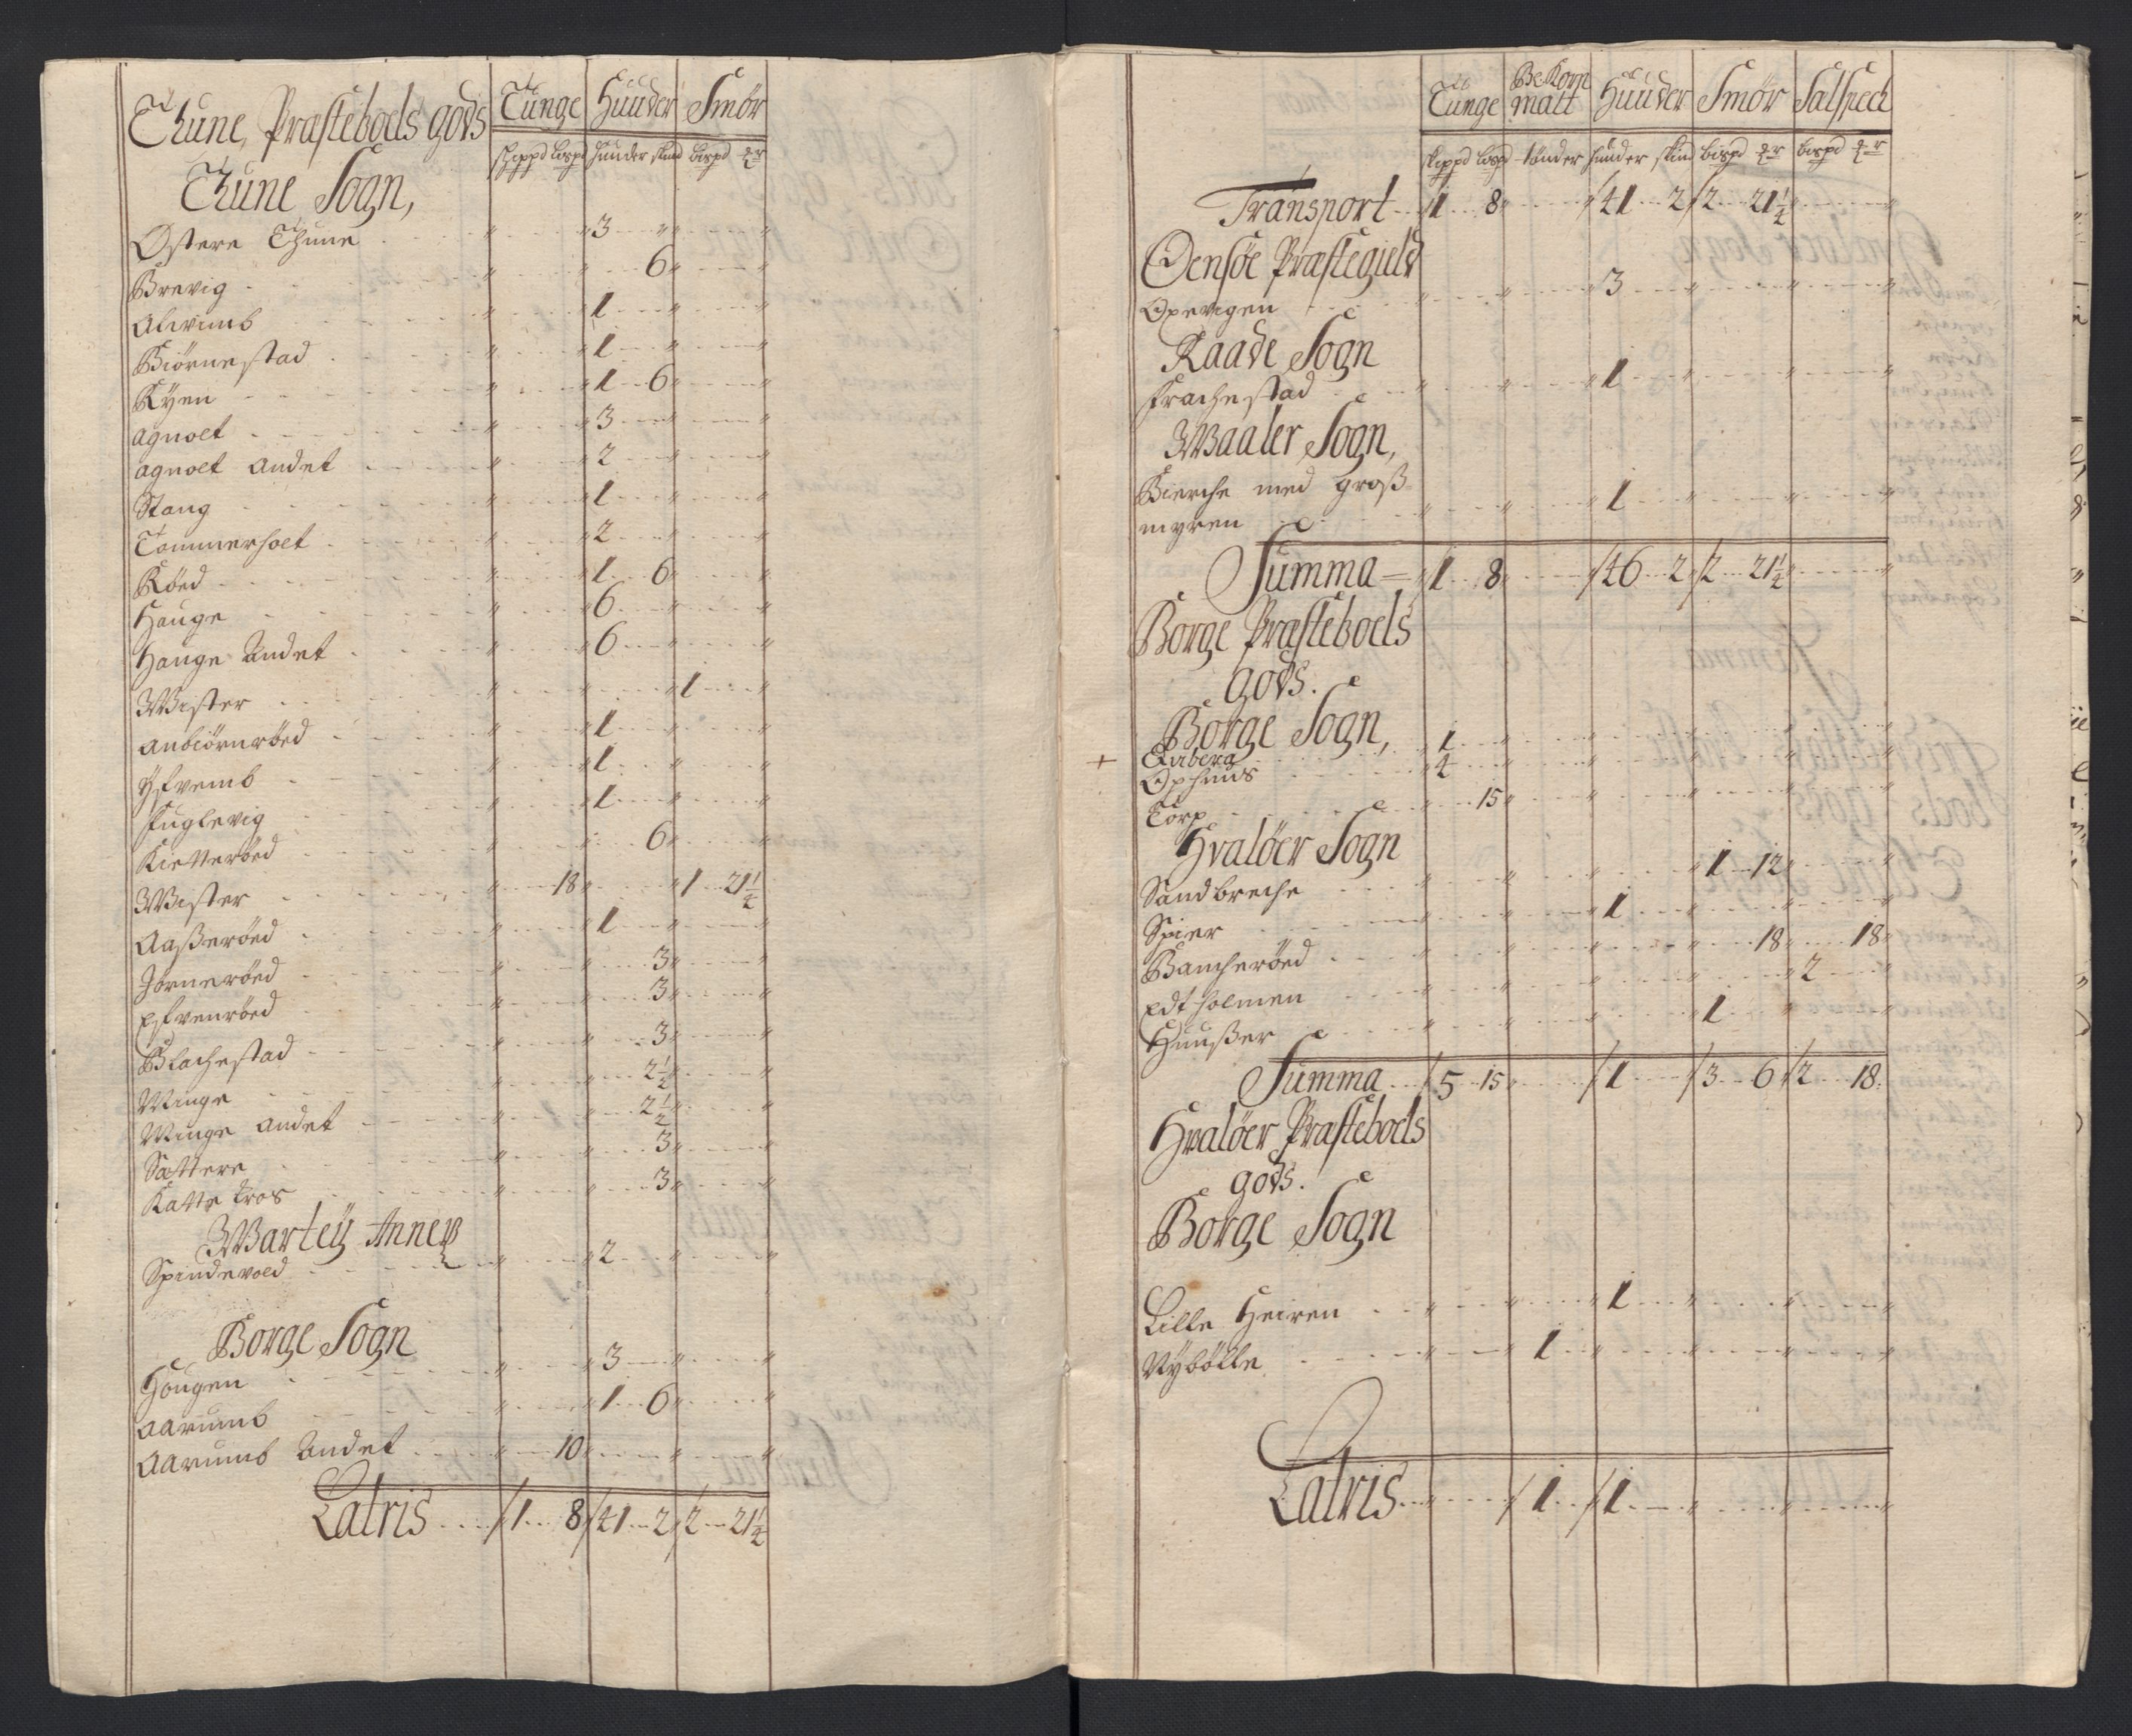 Thune, Præstebools gods Tunge Huuder Smör
skippd lispd huuder skind bispd qr
Thune Sogn,
Östere Thune 3
Brevig 6
Alvimb 1
Biörnestad 1
Ryen 1 6
Agnolt 3
Agnolt Andet 2
Stang 1
Tommerholt 2
Röed 1 6
Hauge 6
Hauge Andet 6
Wister 1
Anbiörnröed 1
Ysvemb 1
Fuglevig 1
Kietteröed 6
Wister 18 1 21 1/2
Aasseröed 1
Jörneröed 3
Esvenröed 3
Blachestad 3
Winge 2 1/2
Winge Andet 2 1/2
Sættere 3
Katte Kros 3
Wartey Annex
Spindevold 2
Borge Sogn
Hougen 3
Aarumb 1 6
Aarumb Andet 10
Latris 1 8 41 2 2 21 1/2
Tunge Be: Korn Matt Huuder Smör Salspech
skippd lispd tönder huuder skind bispd qr bispd qr
Transport 1 8 41 2 2 21 1/2
Oensöe Præstegield
Opevigen 3
Raade Sogn
Frachestad 1
Waaler Sogn,
Bierche med Gross
myren 1
Summa 1 8 46 2 2 21 1/2
Borge Præsteboels
gods.
Borge Sogn,
1
Ophuus 4
Torp 15
Hvalöer Sogn
Sandbreche 1 12
Spier 1
Bancheröed 18 18
Edtholmen 2
Huusser 1
Summa 5 15 1 3 6 2 18
Hvalöer Præsteboels
gods.
Borge Sogn
Lille Heiren 1
Nybölle 1
Latris 1 1